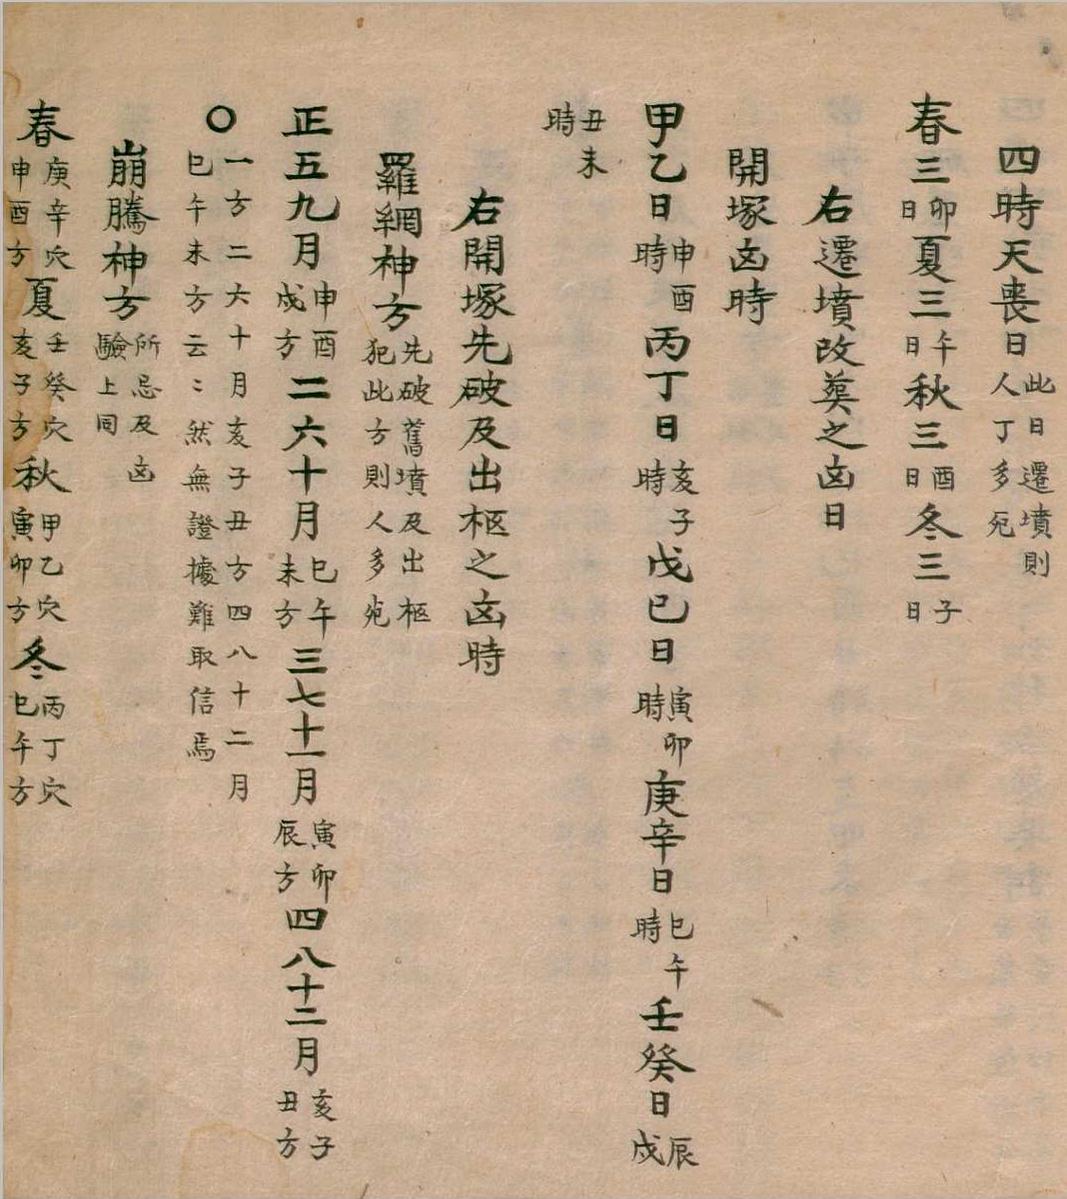 四時天喪日 此日遷墳則人丁多死
春三卯日夏三午日秋三酉日冬三子日
右遷墳改葬之凶日
開塚凶時
甲乙日申酉時丙丁日亥子時戊己日寅卯時庚辛日巳午時壬癸日辰戌
丑未時
右開塚先破及出柩之凶時
羅網神方 先破舊墳及出柩犯此方則人多死
正五九月申酉戌方二六十月巳午未方三七十一月寅卯辰方四八十二月亥子丑方
○一方二六十月亥子丑方四八十二月巳午未方云〻然無證據難取信焉
崩騰神方 所忌及凶驗上同
春庚辛穴申酉方夏壬癸穴亥子方秋甲乙穴寅卯方冬丙丁穴巳午方